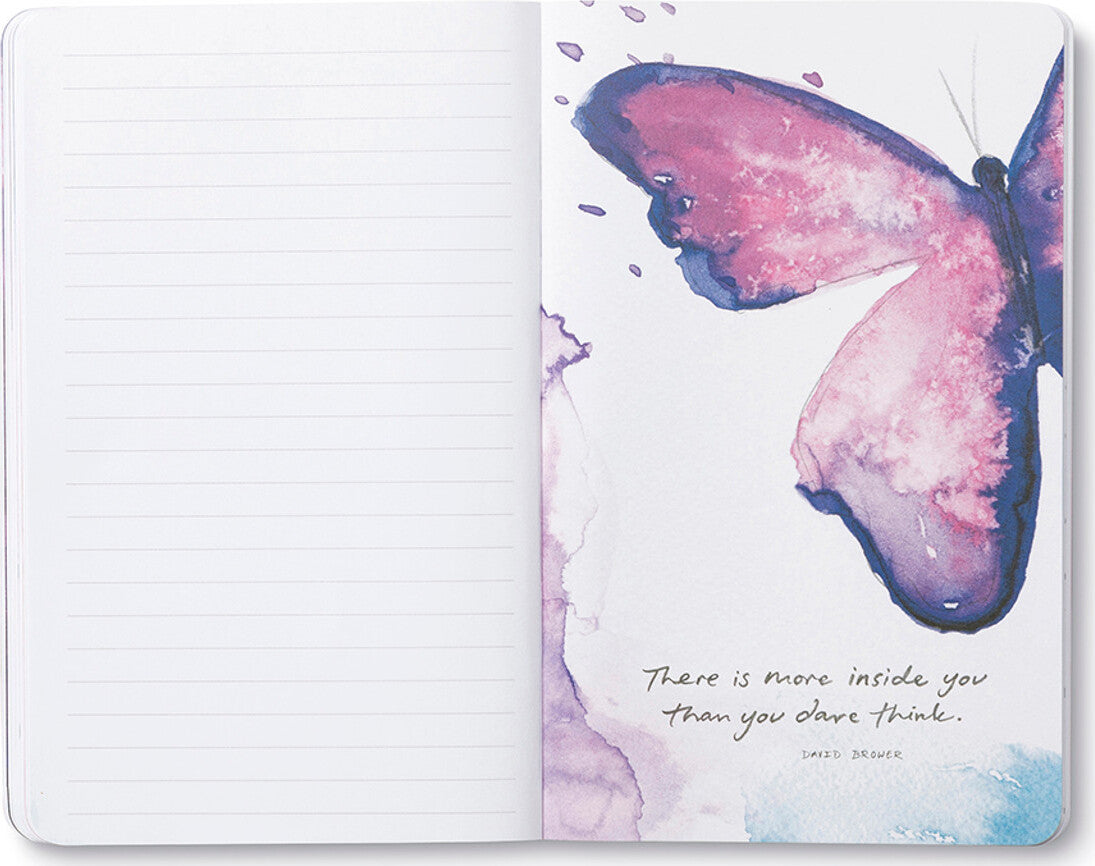 There is more inside you
than you dare think.
DAVID BROWER